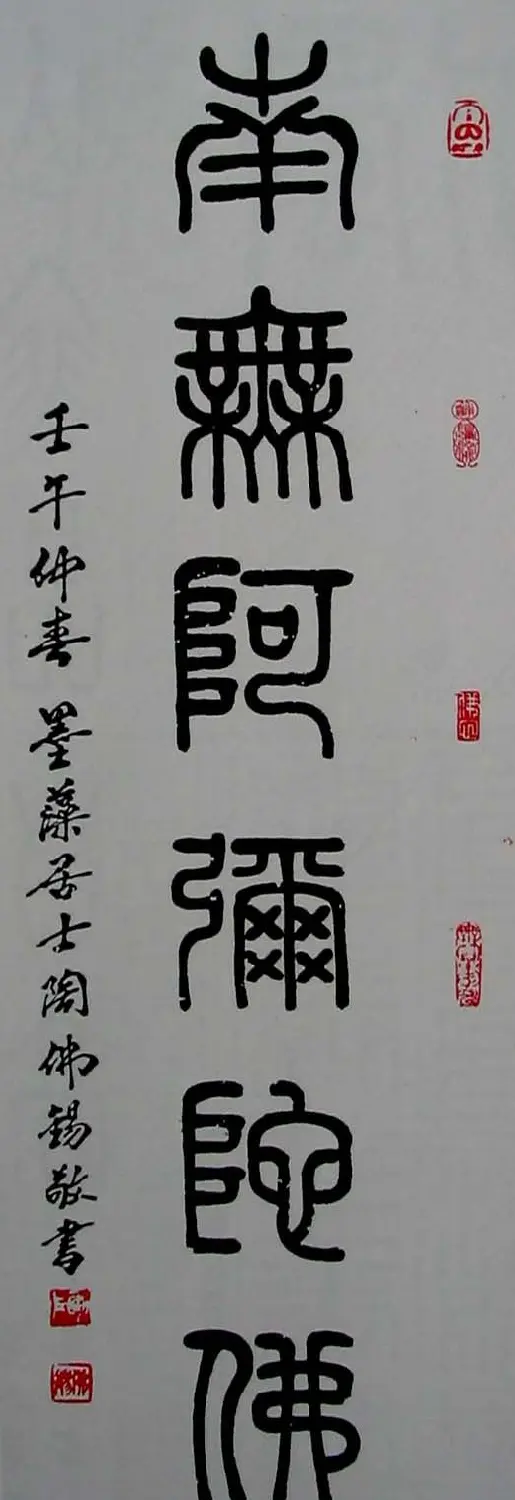 南無阿彌陀佛
壬午仲春 墨藻居士陶佛錫敬書